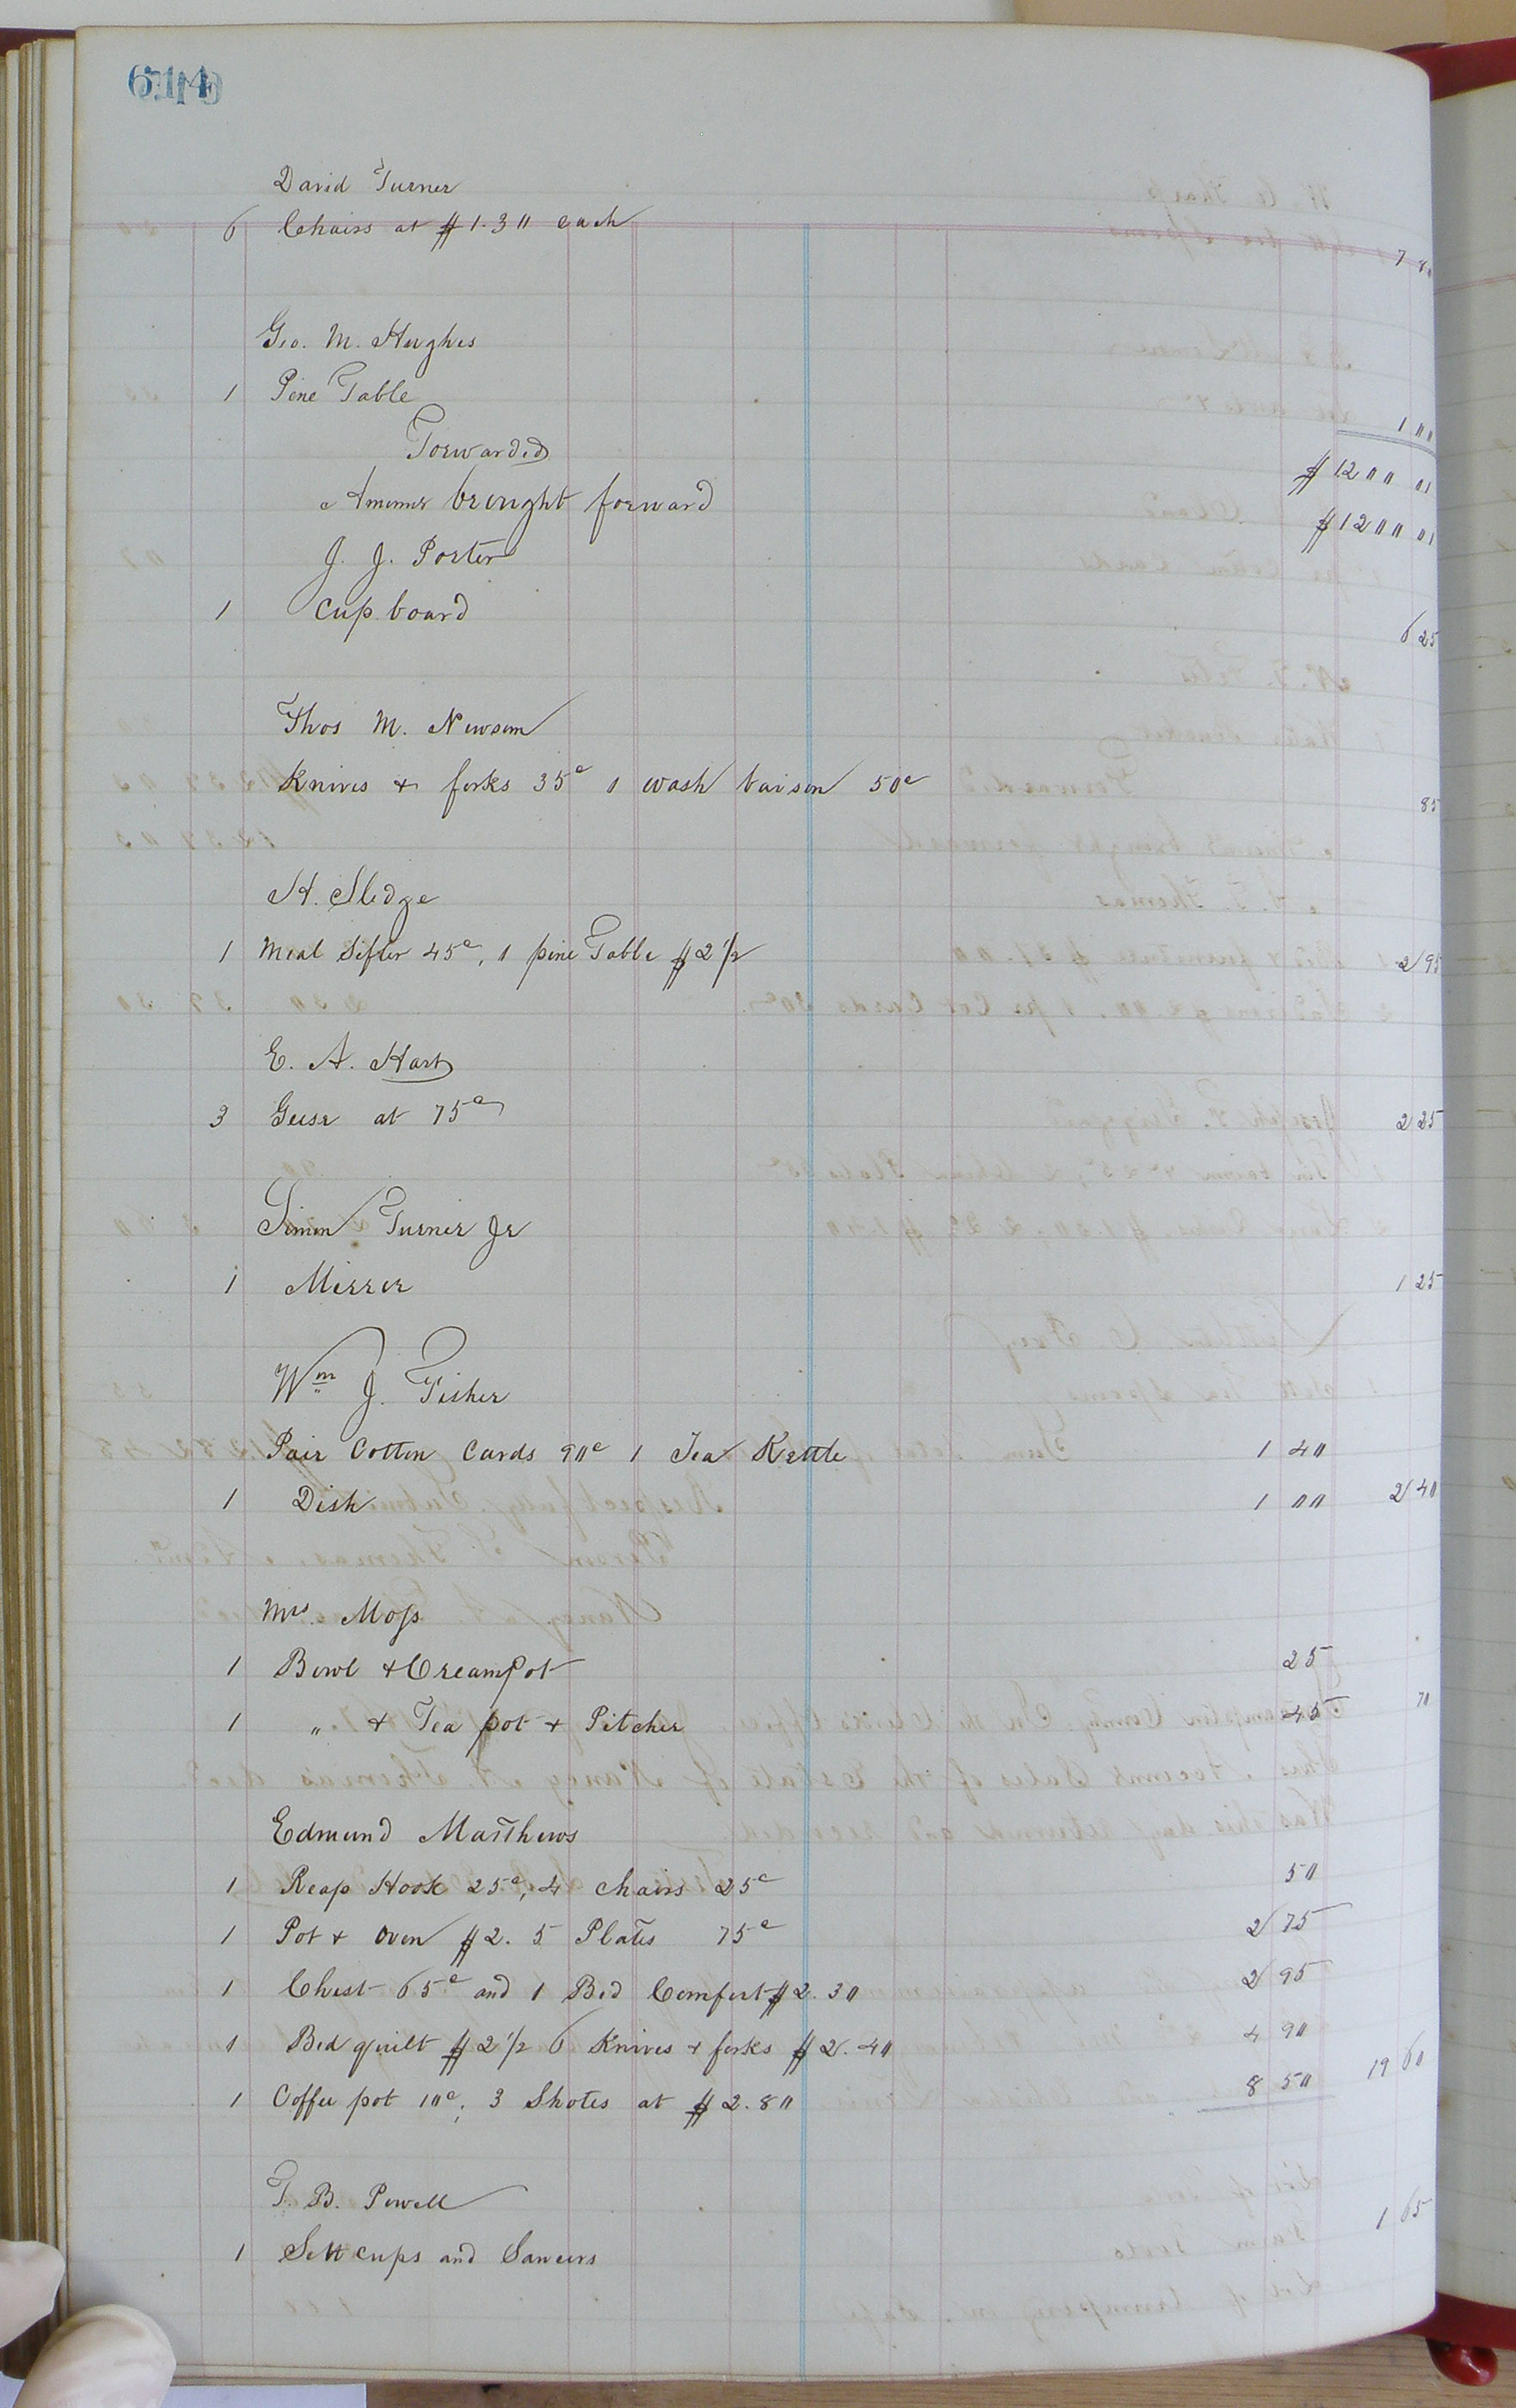 614
David Turner
6 Chairs at $1.30 each 7 80
Geo. M. Hughes
1 Pine Table 1 00
Forwarded $1200 01
Amount brought forward $1200 01
J. J. Porter
1 Cup board 6 25
Thos M. Newsom
Knives & forks 35c 1 wash baison 50c 85
H. Sledge
1 Meal Sifter 45c, 1 pine Table $2 1/2 2 95
E. A. Hart
3 Geese at 75c 2 25
Simon Turner Jr
1 Mirrer 1 25
Wm J. Fisher
Pair Cotton Cards 90c 1 Tea Kettle 1 40
1 Dish 1 00 2 40
Mrs. Moss
1 Bowl & Creampot 25
1 " & Tea pot & Pitcher 45 70
Edmund Matthews
1 Reap Hook 25c, 4 chairs 25c 50
1 Pot & Oven $2. 5 Plates 75c 2 75
1 Chest 65c and 1 Bed Comfort $2.30 2 95
1 Bed quilt $2 1/2 6 Knives & forks $2.40 4 90
1 Coffee pot 10c; 3 Shotes at $2.80 8 50 19 60
T. B. Powell
1 Sett cups and Saucers 1 65